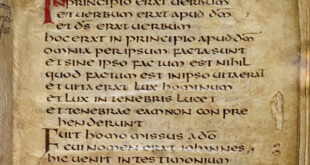 IN PRINCIPIO ERAT UERBUM
ET UERBUM ERAT APUD DM
ET DS ERAT UERBUM
HOC ERAT IN PRINCIPIO APUD DM
OMNIA PER IPSUM FACTA SUNT
ET SINE IPSO FACTUM EST NIHIL
QUOD FACTUM EST IN IPSO UITA ERAT
ET UITA ERAT LUX HOMINUM
ET LUX IN TENEBRIS LUCET
ET TENEBRAE EAM NON CONPRE
HENDERUNT
FUIT HOMO MISSUS A DO
CUI NOMEN ERAT IOHANNES
HIC UENIT IN TESTIMONIUM